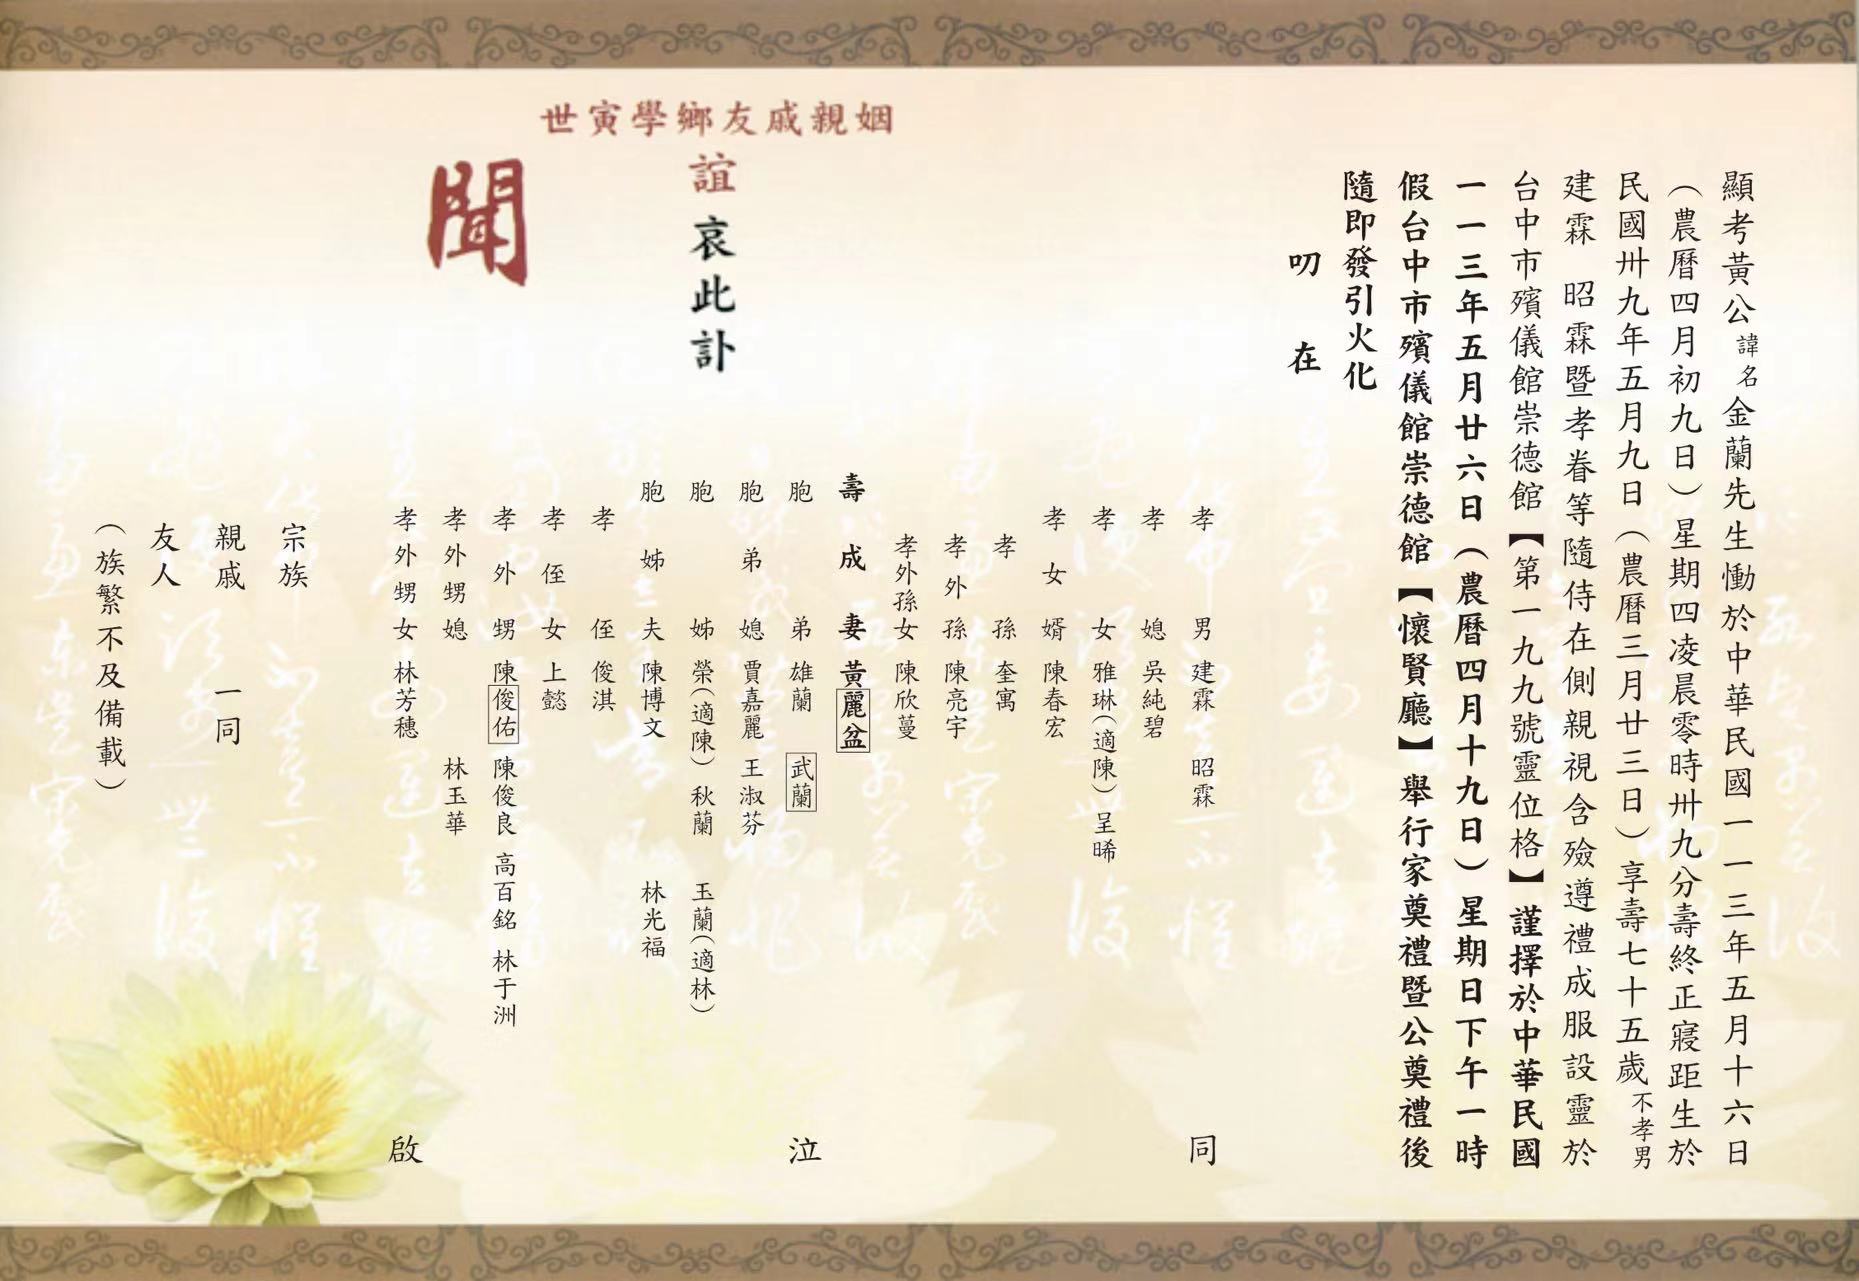 顯考黃公諱名金蘭先生慟於中華民國一一三年五月十六日
（農曆四月初九日）星期四凌晨零時卅九分壽終正寢距生於
民國卅九年五月九日（農曆三月廿三日）享壽七十五歲不孝男
建霖 昭霖暨孝眷等隨侍在側親視含殮遵禮成服設靈於
台中市殯儀館崇德館【第一九九號靈位格】謹擇於中華民國
一一三年五月廿六日（農曆四月十九日）星期日下午一時
假台中市殯儀館崇德館【懷賢廳】舉行家奠禮暨公奠禮後
隨即發引火化
叨在
姻親戚友鄉學寅世
誼哀此訃
聞
孝男 建霖 昭霖
孝媳 吳純碧
孝女 雅琳（適陳）呈晞
孝女婿 陳春宏
孝孫 奎寓
孝外孫 陳亮宇
孝外孫女 陳欣蔓
壽成妻 黃麗盆
胞弟 雄蘭 武蘭
胞弟媳 賈嘉麗 王淑芬
胞姊 榮（適陳）秋蘭 玉蘭（適林）
胞姊夫 陳博文 林光福
孝侄 俊淇
孝侄女 上懿
孝外甥 陳俊佑 陳俊良 高百銘 林于洲
孝外甥媳 林玉華
孝外甥女 林芳穗
同泣啟
宗族
親戚 一同
友人
（族繁不及備載）